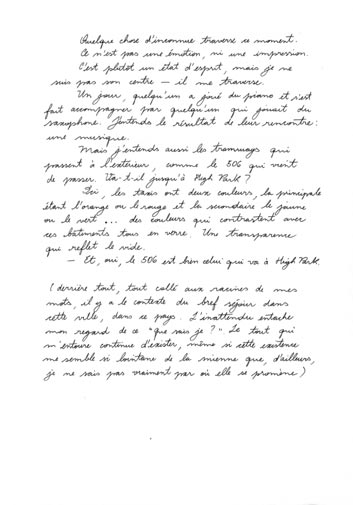 Quelque chose d'inconnue traverse ce moment.
Ce n'est pas une émotion, ni une impression.
C'est plutôt un état d'esprit, mais je ne
suis pas son centre — il me traverse.
Un jour, quelqu'un a joué du piano et s'est
fait accompagner par quelqu'un qui jouait du
saxophone. J'entends le résultat de leur rencontre :
une musique.
Mais j'entends aussi les tramways qui
passent à l'extérieur, comme le 506 qui vient
de passer. Va-t-il jusqu'à High Park ?
Ici, les taxis ont deux couleurs, la principale
étant l'orange ou le rouge et la secondaire le jaune
ou le vert ... des couleurs qui contrastent avec
ces bâtiments tous en verre. Une transparence
qui reflèt le vide.
— Et, oui, le 506 est bien celui qui va à High Park.
(derrière tout, tout collé aux racines de mes
mots, il y a le contexte du bref séjour dans
cette ville, dans ce pays. L'inattendu entache
mon regard de ce "que sais je ?" Le tout qui
m'entoure continue d'exister, même si cette existence
me semble si lointaine de la mienne que, d'ailleurs,
je ne sais pas vraiment par où elle se promène)